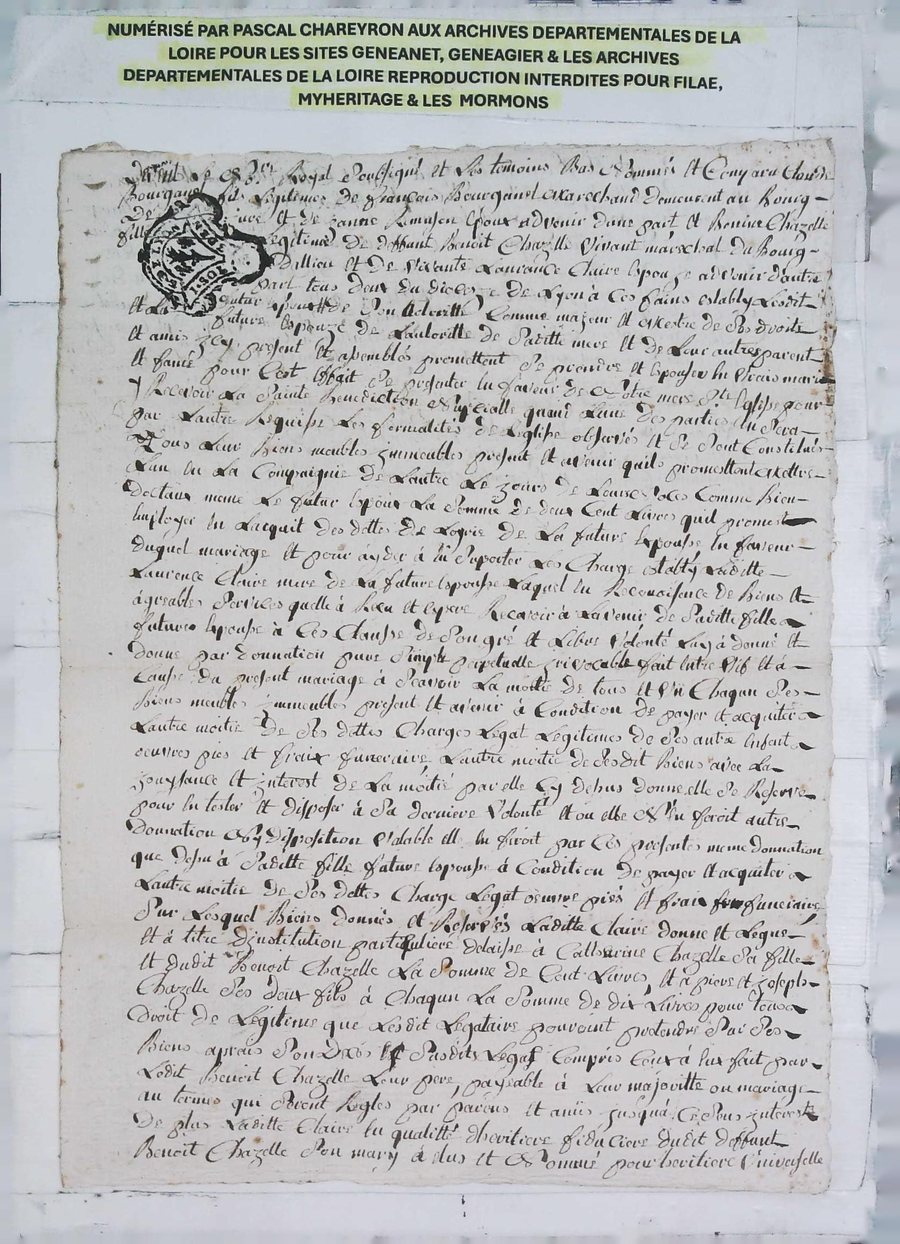 NUMÉRISÉ PAR PASCAL CHAREYRON AUX ARCHIVES DEPARTEMENTALES DE LA
LOIRE POUR LES SITES GENEANET, GENEAGIER & LES ARCHIVES
DEPARTEMENTALES DE LA LOIRE REPRODUCTION INTERDITES POUR FILAE,
MYHERITAGE & LES MORMONS
Royal soussigné et les temoins Bas Nommés et
Bourganel fils Legitimes de françois Bourganel Marechand demeurant au Bourg
et de janne epoux advenir dune part et Chazelle
fille Legitime de deffunt Benoit Chazelle vivant mareschal du Bourg
et de vivante Laurance Claire espouze advenir dautre
part tous deux du dioceze de Lyon à ces fains estably Lesdit
futur Comme majeur et Mestre de ses droits
et La future espouze de Lautoritte de saditte mere et de Leur autres parent
et amis jcy present et asembles promettent se prendre et espouser en vrais marie
et famé pour Cest effait se presenter en faveur de Notre mere ste Eglise pour
y Recevoir La sainte Benediction Nupcialle quand Lune des parties en sera
par Lautre Requise Les formalités de Leglise observés et se sont Constitués
tous Leur Biens meubles jmmeubles present et avenir quils promettent Mettre
Lun en La Compagnie de Lautre Le jours de Leurs Comme Bien
doctaux meme Le futur Espoux La somme de deux Cent Livres quil promest
Employer en Lacquit des dettes de de La future Epouse en faveur
duquel mariage et pour ayder à en suporter Les Charge estably Laditte
Laurence Claire mere de La future espouse Laquel en Reconaisence de Biens et
agreables services quelle à Recu et espere Recevoir à Lavenir de saditte fille
future espouse à ces Clausse de son gré et Libre volonté Luy à donné et
donne par donnation pure simple perpetuelle jrrivocable fait entre vifs et à
Cause du present mariage à scavoir La moitie de tous et un Chaqun ses
Biens meubles jmmeubles present et avenir à Condition de payer et acquiter
Lautre moitie de ses dettes Charges Legat Legitimes de ses autre enfait
oeuvres pies et fraix funeraire Lautre moitie de sesdit Biens avec La
jouystance et jnterest de La moitié par elle Cy desus donne elle se Reserve
pour en tester et disposer à sa derniere volonté et ou elle N'en feroit autre
donnation Ny disposition valable elle en feroit par Ces presentes meme donnation
que desu à saditte fille future espouse à Condition de payer et acquiter
Lautre moitie de ses dettes Charge Legat oeuvre pies et frais funeraire
sur Lesquel Biens donnés et Reservés Laditte Claire donne et Legue
et à titre djnstitution particuliere delaisse à Catherine Chazelle sa fille
et dudit Benoit Chazelle La somme de Cent Livres et à piere et joseph
Chazelle ses deux fils à Chaqun La somme de dix Livres pour tous
droit de Legitime que Lesdit Legataire pouroint pretendre sur ses
Biens aprais son susdits Legas Compris Ceux à eux fait par
Ledit Benoit Chazelle Leur pere, payeable à Leur majoritte ou mariage
au termes qui seront Regles par parens et amis jusquà Ce sans jnterest
de plus Laditte Claire en qualitté dheritiere fiduciere dudit deffunt
Benoit Chazelle son mary à elus et Nommé pour heritiere universelle